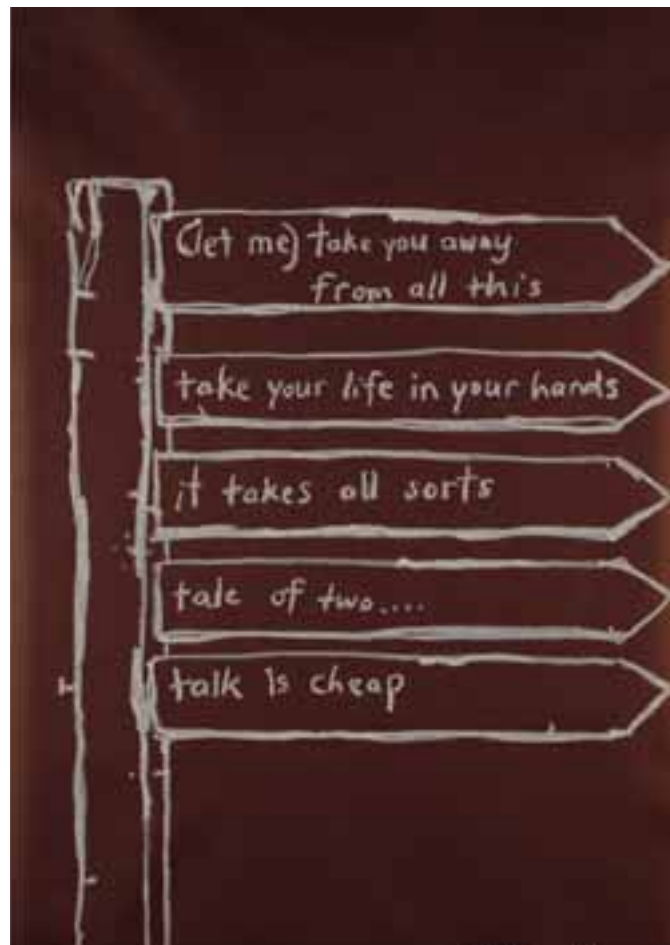 (let me) take you away
from all this
take your life in your hands
it takes all sorts
tale of two....
talk is cheap